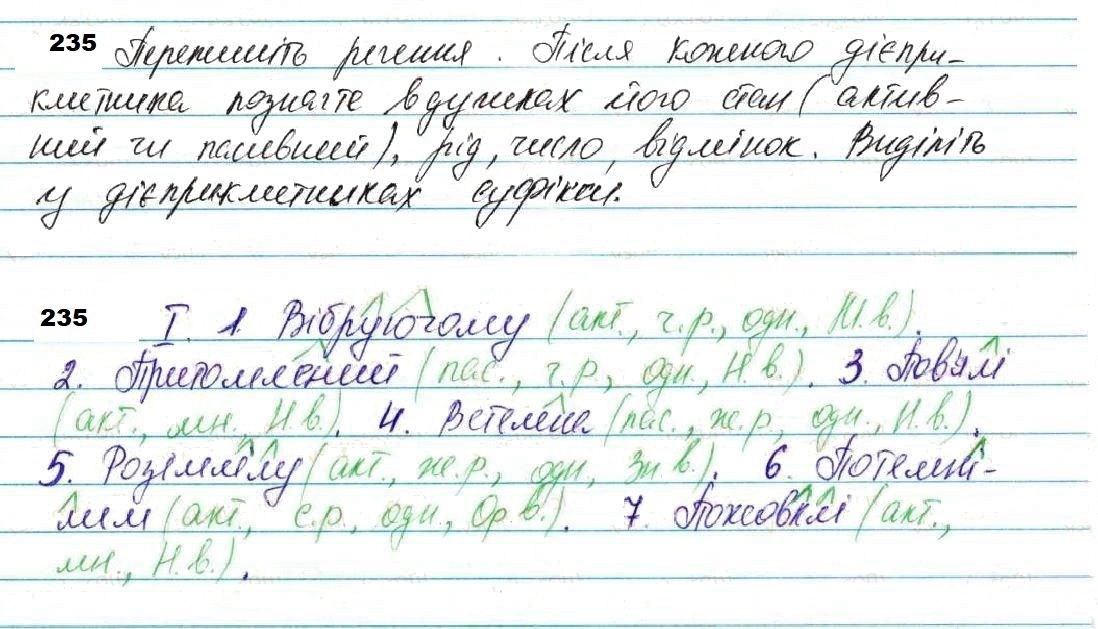 235 Перепишіть речення. Після кожного дієпри-
кметника позначте в дужках його стан (актив-
ний чи пасивний), рід, число, відмінок. Виділіть
у дієприкметниках суфікси.
235 І. 1. Вібруючому (акт., ч.р., одн., М.в.).
2. Притомлений (пас., ч.р., одн., Н.в.). 3. Пов'ялі
(акт., мн., Н.в.). 4. Встелена (пас., ж.р., одн., Н.в.).
5. Розімлілу (акт., ж.р., одн, Зн в.). 6. Потемні-
лим (акт., с.р., одн., Ор в.). 7. Пожовклі (акт.,
мн., Н.в.).